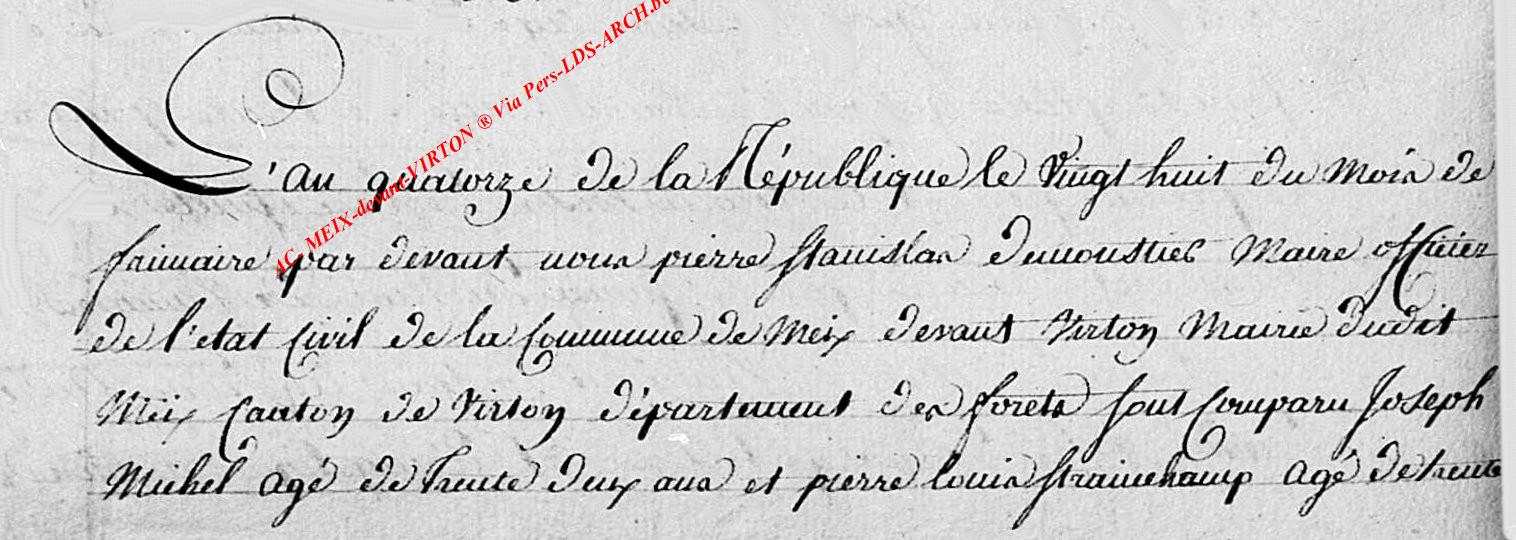 AC_MEIX-devant-VIRTON ® Via Pers-LDS-ARCH.be
L'an quatorze de la République le vingt huit du mois de
frimaire par devant nous pierre stanislas demoustier Maire officier
de l'etat civil de la Commune de Meix devant Virton Mairie dudit
Meix Canton de Virton département des forets sont comparu Joseph
Michel agé de trente deux ans et pierre louis strainchamp agé de trente